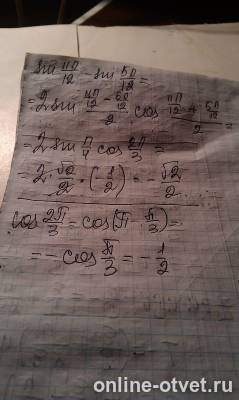 sin 11π/12 - sin 5π/12 =
= 2 sin (11π/12 - 5π/12)/2 cos (11π/12 + 5π/12)/2 =
= 2 sin π/4 cos 2π/3 =
= 2 · √2/2 · (-1/2) = - √2/2
cos 2π/3 = cos(π - π/3) =
= - cos π/3 = - 1/2
online-otvet.ru